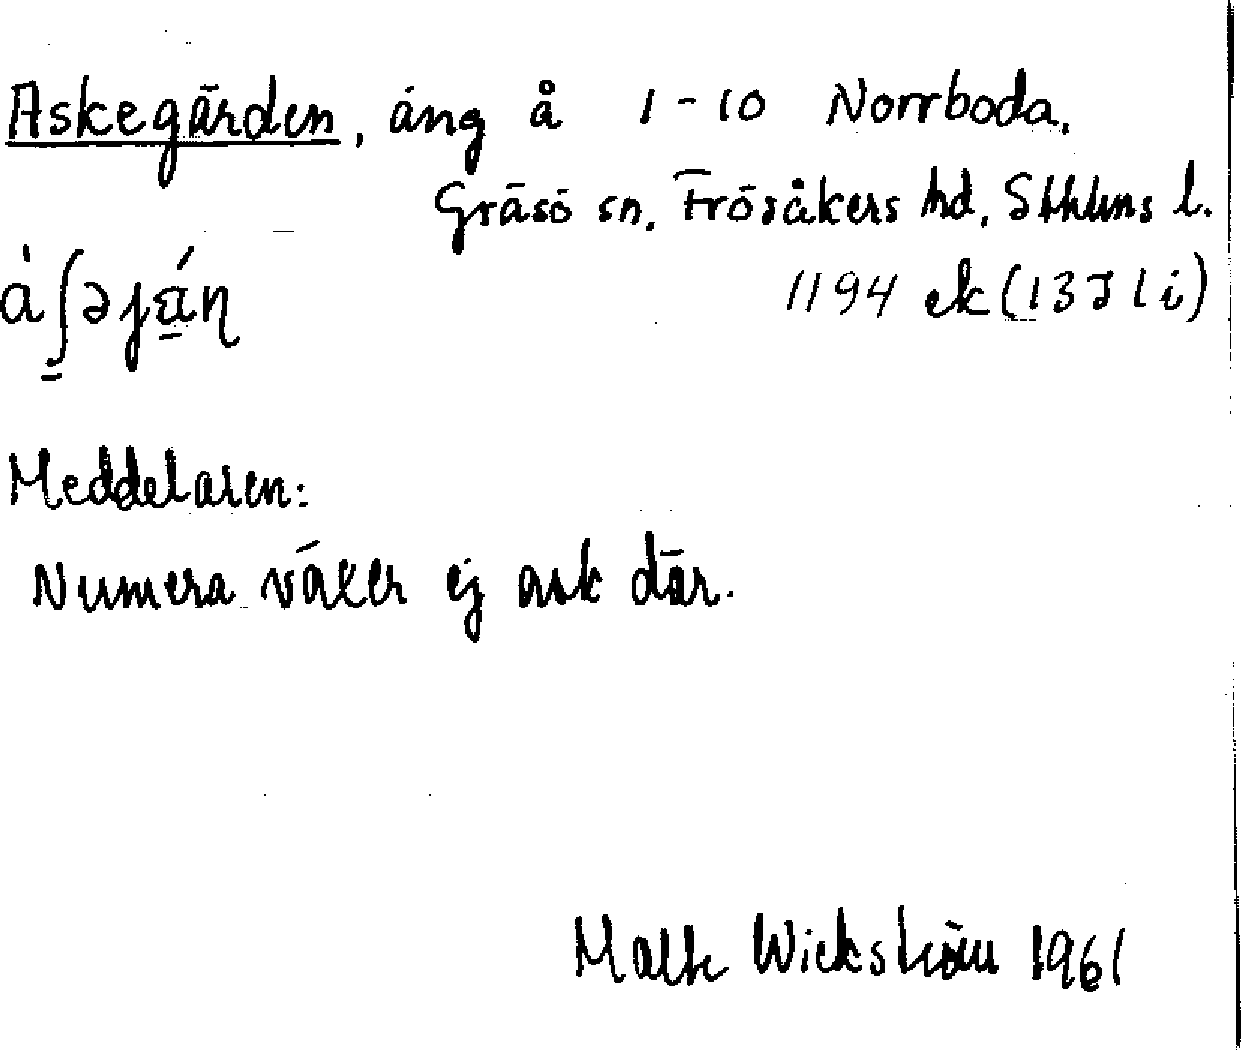 Askegärden, äng å 1-10 Norrboda,
Gräsö sn, Frösåkers hd, Sthlms l.
1194 ek (13J1i)
Meddelaren:
Numera växer ej ask där.
Malte Wickström 1961